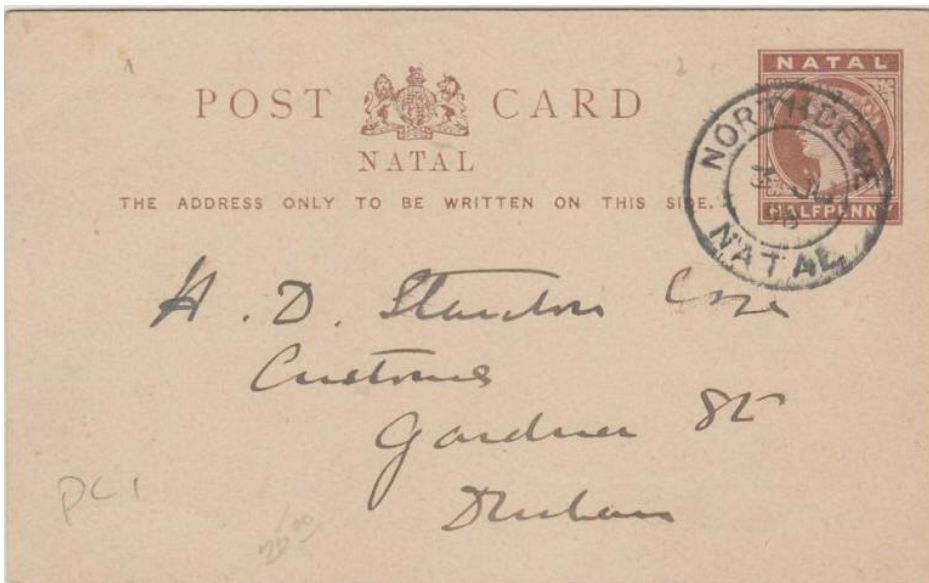 POST CARD
NATAL
THE ADDRESS ONLY TO BE WRITTEN ON THIS SIDE.
NATAL
HALFPENNY
NORTHDENE
JL
NATAL
H. D. Stanton Esqre
Customs
Gardner St
Durban
PC 1